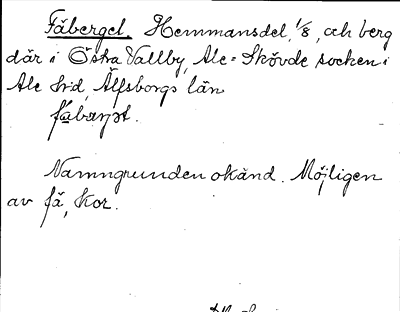 Fäberget. Hemmansdel, 1/8, och berg
där i Östra Vallby, Ale-Skövde socken i
Ale hd, Älfsborgs län
Namngrunden okänd. Möjligen
av fä, kor.